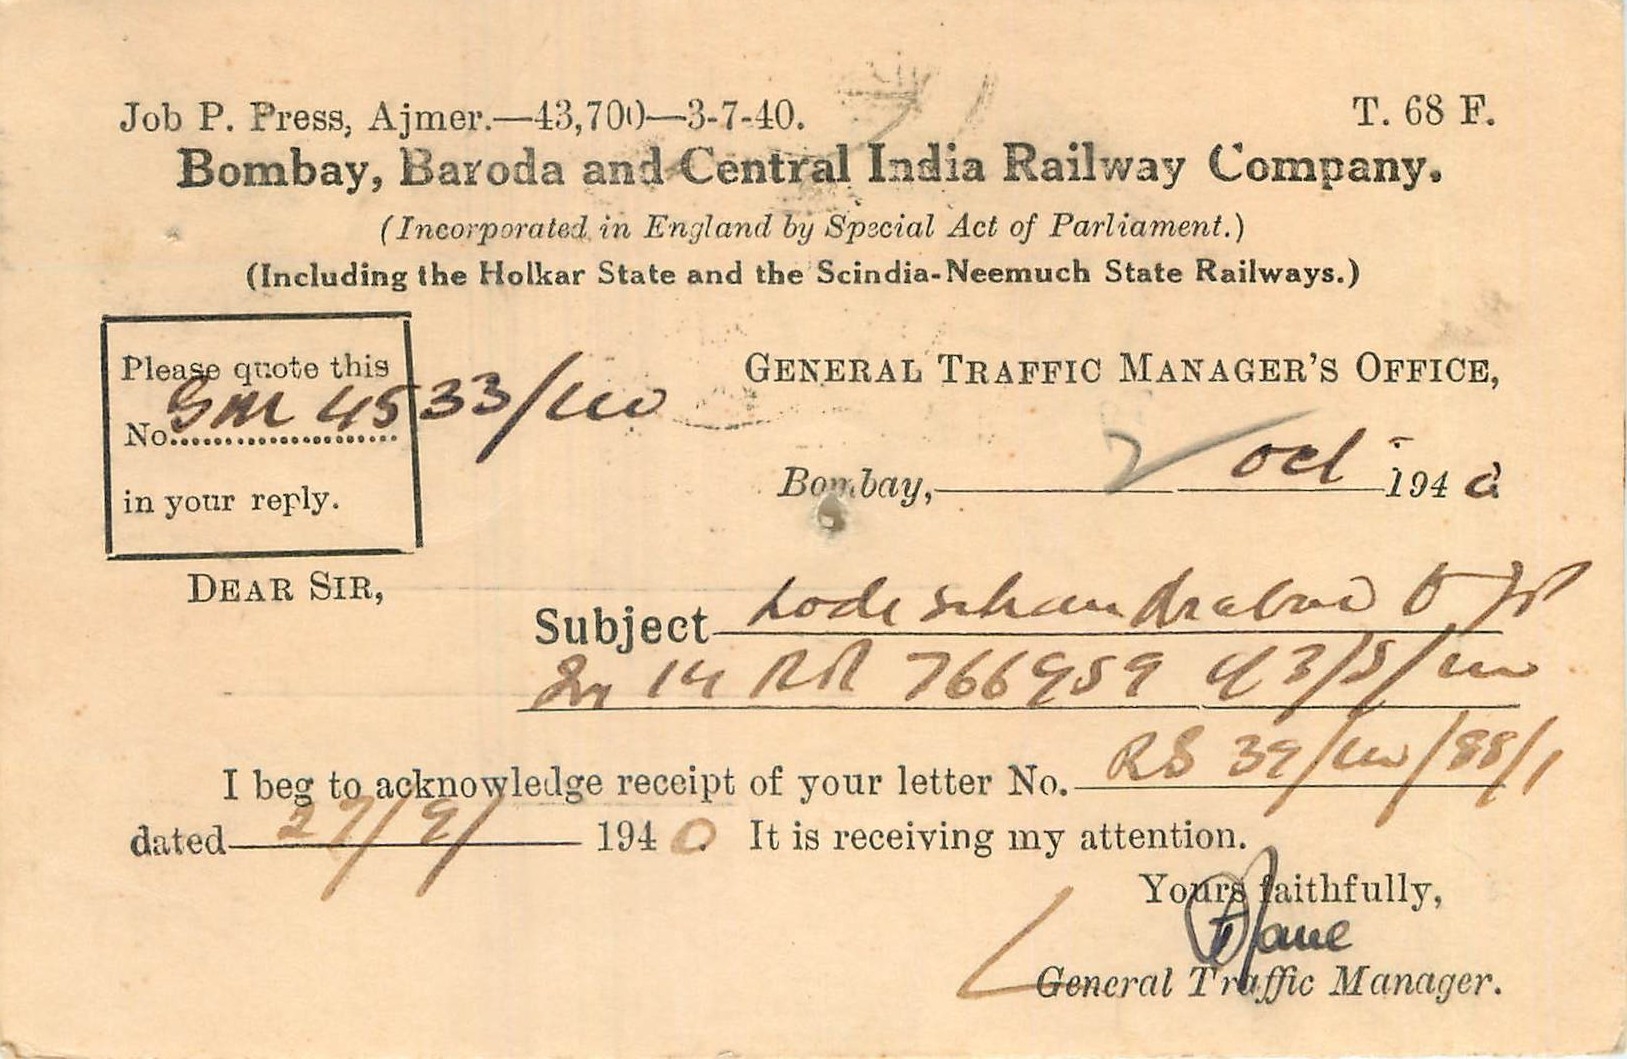 Job P. Press, Ajmer.—43,700—3-7-40. T. 68 F.
Bombay, Baroda and Central India Railway Company.
(Incorporated in England by Special Act of Parliament.)
(Including the Holkar State and the Scindia-Neemuch State Railways.)
Please quote this
No. 4533/
in your reply.
GENERAL TRAFFIC MANAGER'S OFFICE,
Bombay, 2 Oct 1940
DEAR SIR,
Subject
14 RR 766959 3/5/
I beg to acknowledge receipt of your letter No. RS 39/ /88/1
dated 27/9/ 1940. It is receiving my attention.
Yours faithfully,
General Traffic Manager.